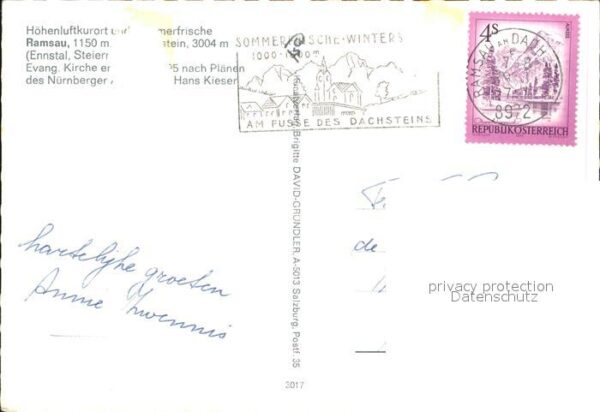 Höhenluftkurort un
merfrische
Ramsau, 1150 m
stein, 3004 m
(Ennstal, Steier
Evang. Kirche er
95 nach Plänen
des Nürnberger A
Hans Kieser
SOMMERFRISCHE-WINTERS
1000-
AM FUSSE DES DACHSTEINS
RAMSAU AM DACH
8972
4S
REPUBLIK ÖSTERREICH
Brigitte DAVID-GRUNDLER, A-5013 Salzburg, Postf. 35
hartelijke groeten
Annie
de
privacy protection
Datenschutz
3017